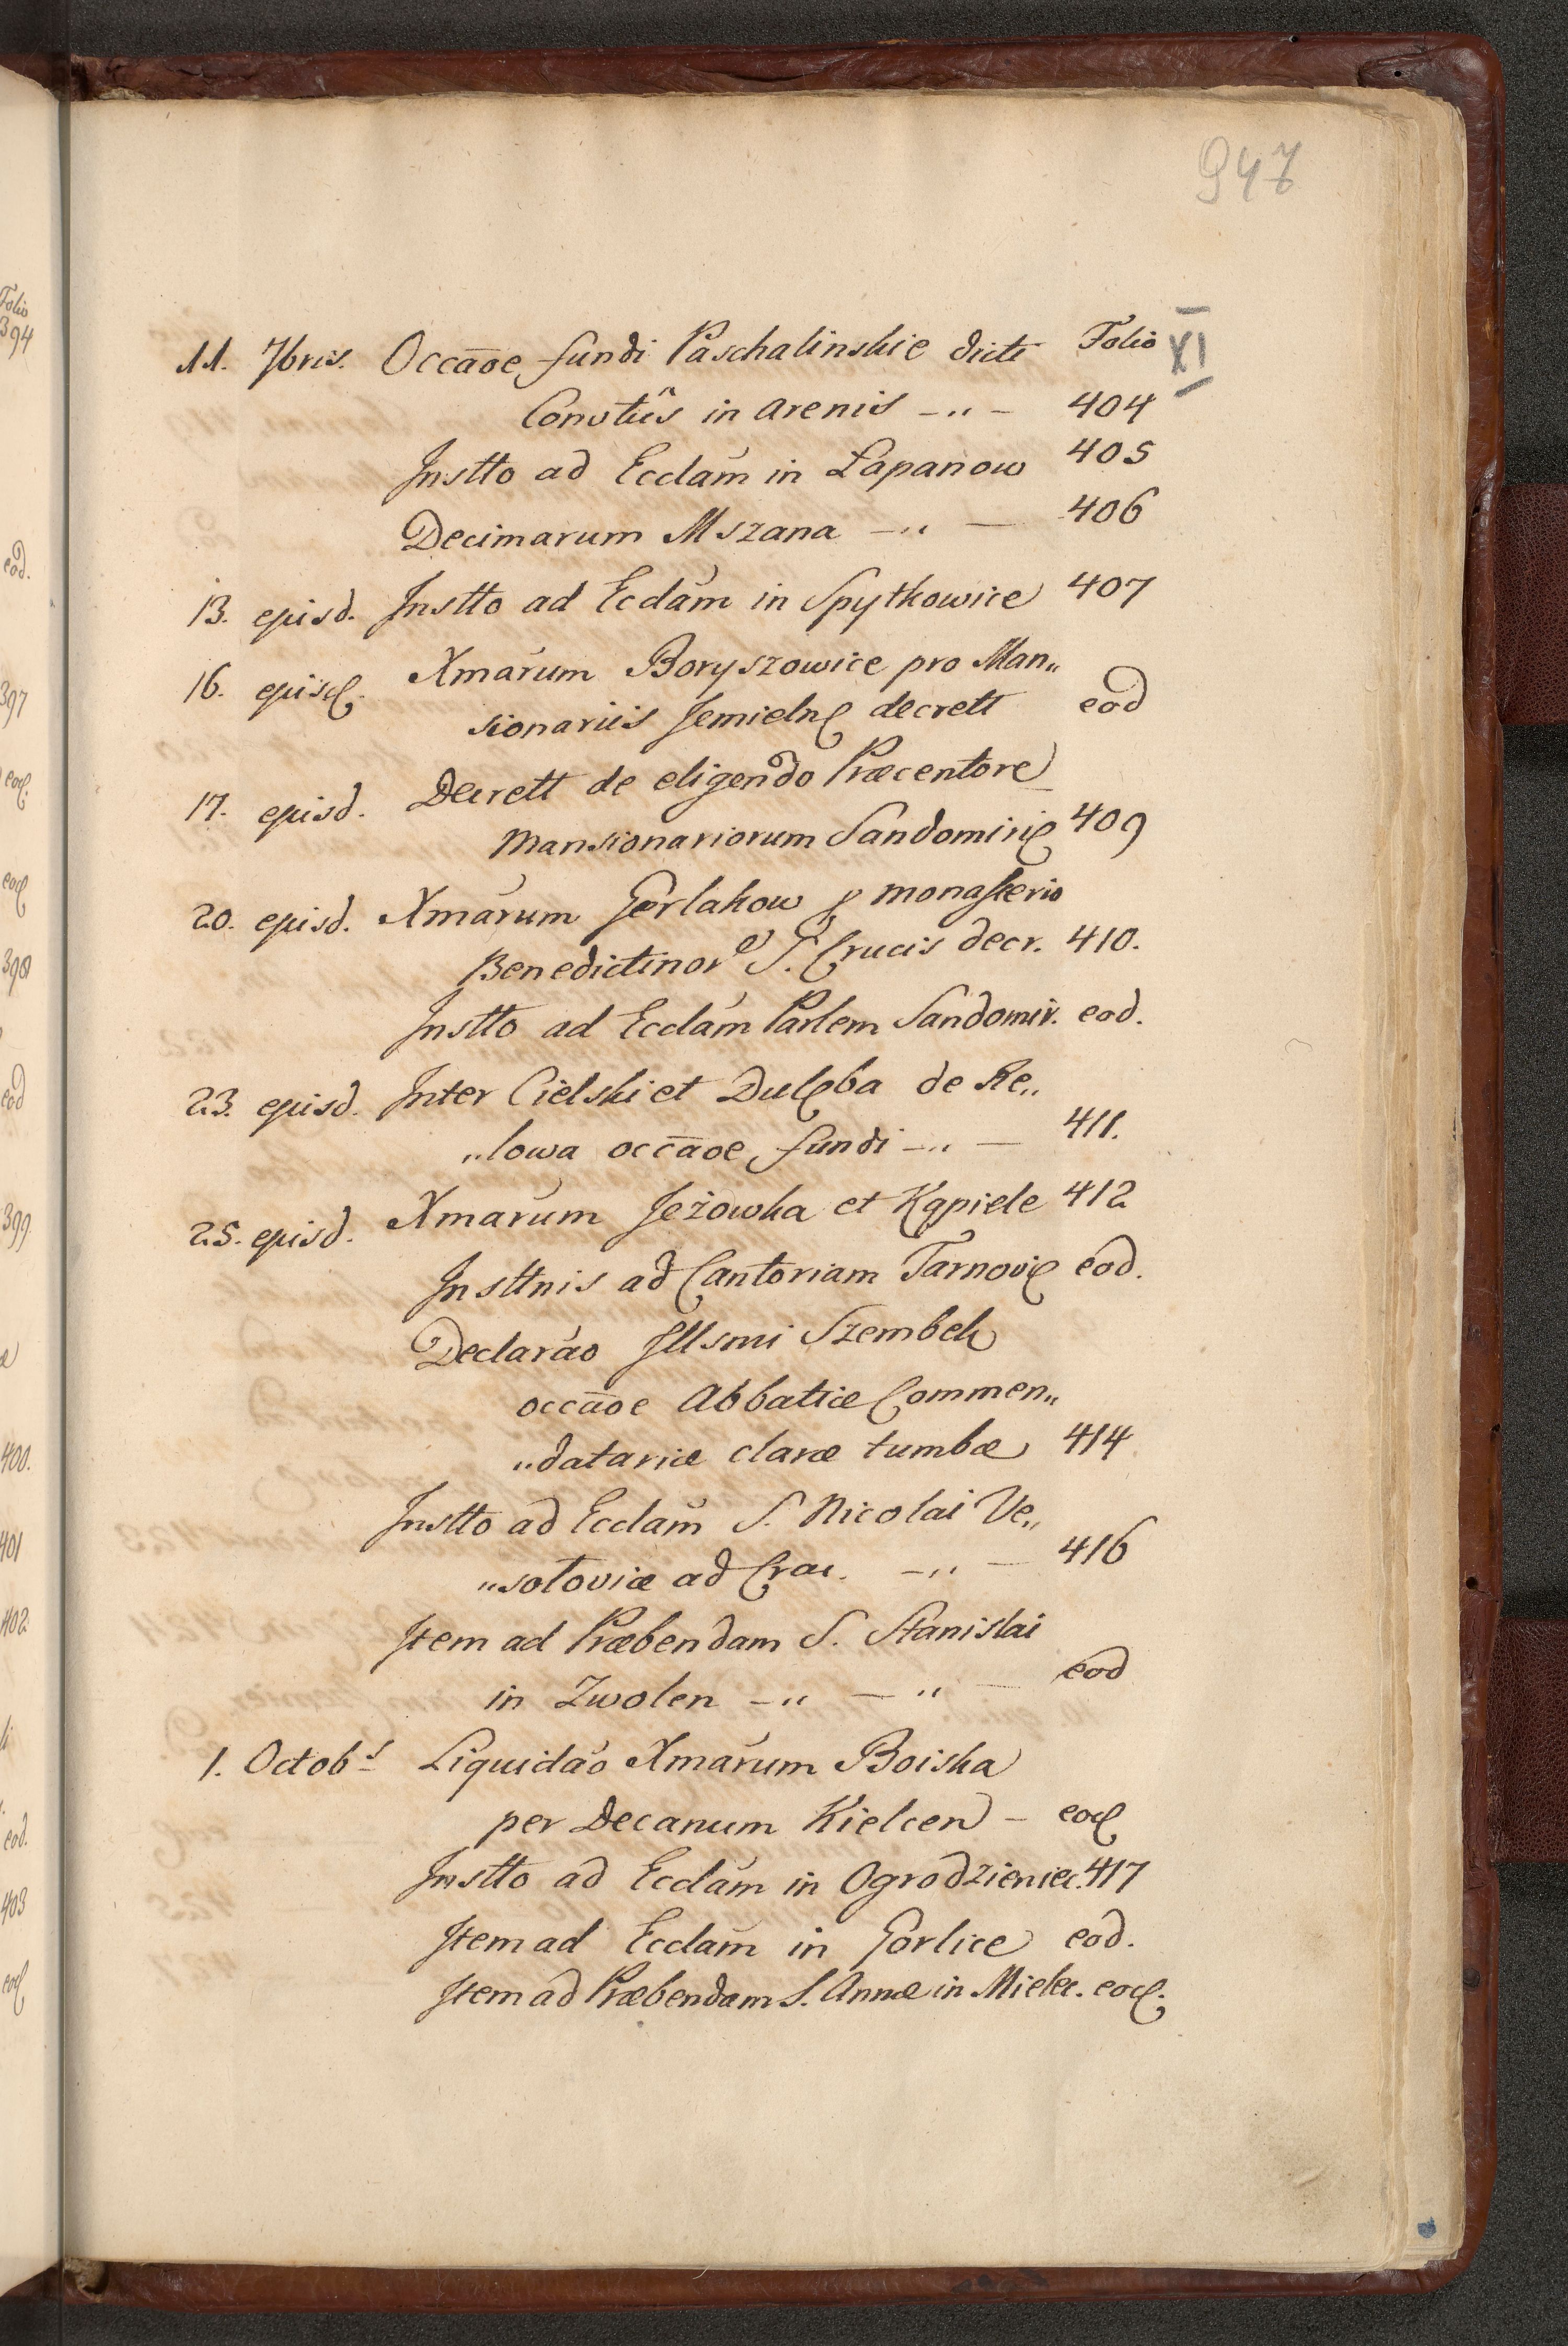 947
11. 7bris. Occāoe fundi Paschalinskie dicti Folio XI
Convtûs in arenis -„- 404
Instto ad Ecclãm in Łapanow 405
Decimarum Mszana -„- 406
13. ejusd. Instto ad Ecclãm in Spytkowice 407
16. ejusd. Xmãrum Boryszowice pro Man„
sionariis Jemielnę decrett eod
17. ejusd. Decrett de eligendo Præcentore
Mansionariorum Sandomirię 409
20. ejusd. Xmãrum Gorlakow p monasterio
Benedictinor S. Crucis decr. 410.
Instto ad Ecclãm Parlem Sandomir. eod.
23. ejusd. Inter Cielski et Dulęba de Re„
„lowa occāoe fundi -„- 411.
25. ejusd. Xmãrum Jeżowka et Kąpiele 412
Insttnis ad Cantoriam Tarnovię eod.
Declarão Illsmi Szembek
occāoe Abbatiæ Commen„
„datariæ claræ tumbæ 414
Instto ad Ecclãm S. Nicolai Ve„
„sotoviæ ad Crac. -„- 416
Item ad Præbendam S. Stanislai
in Zwolen -„ - „ - eod
1. Octobs Liquidão Xmãrum Boiska
per Decanum Kielcen - eod
Instto ad Ecclãm in Ogrodzieniec. 417
Item ad Ecclãm in Gorlice eod.
Item ad Præbendam S. Annæ in Mielec. eod.
Folio
394
eod.
397
eod.
eod
398
eod
399
400.
401
402
li
eod.
403
eod